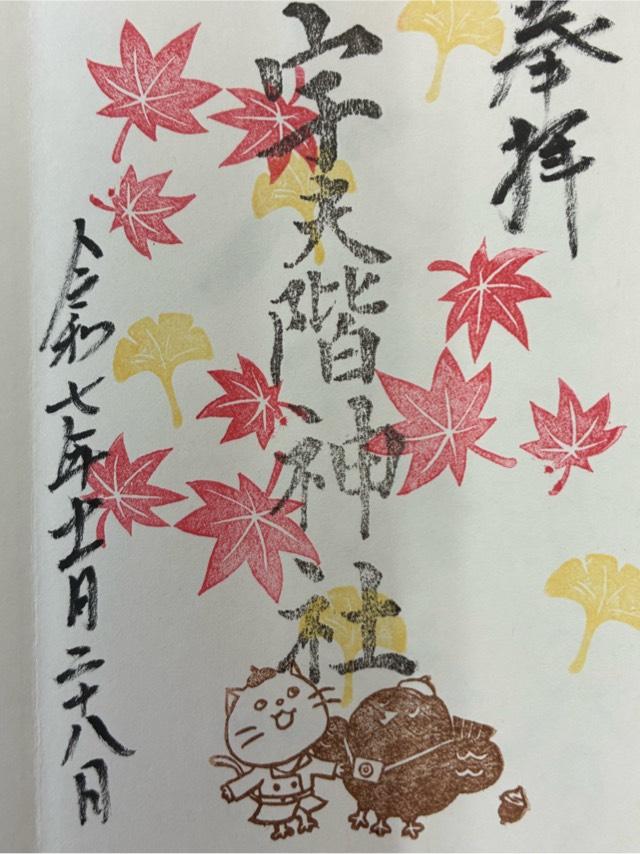 奉拝
宇夫階神社
令和七年十一月二十八日